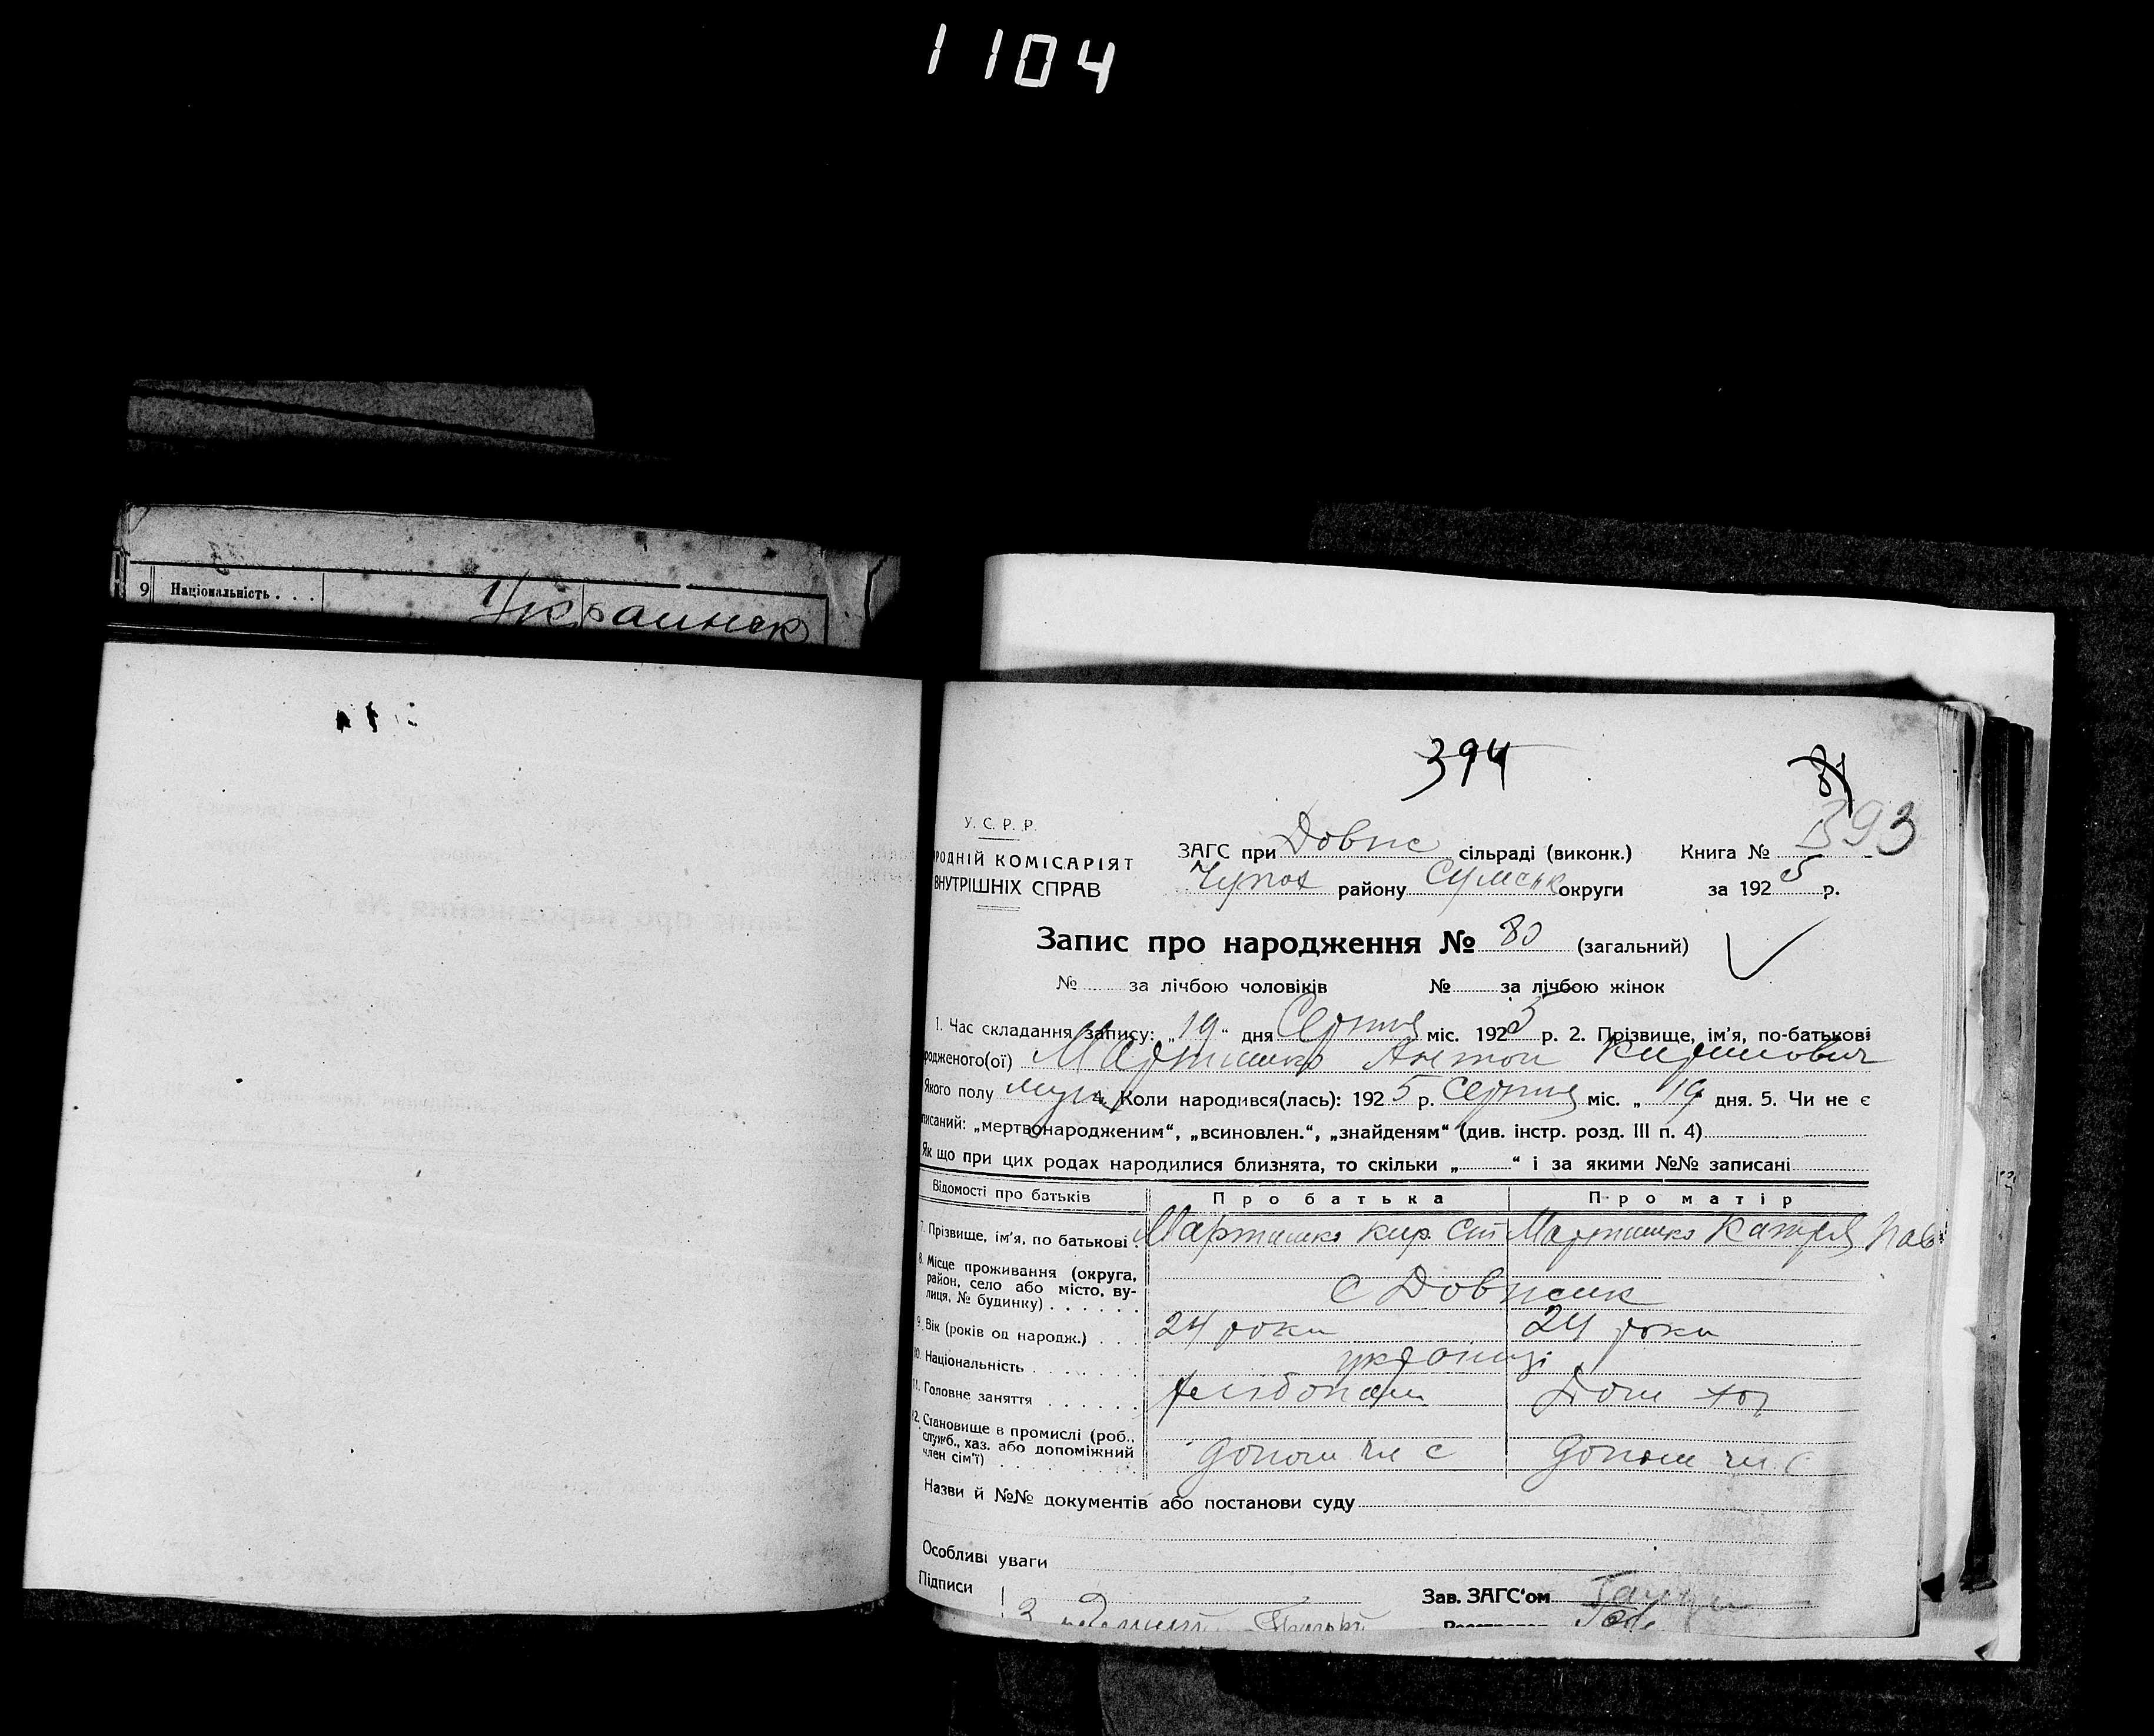 1104
9 Національність . . . Украинск
394
81
393
У. С. Р. Р.
РОДНІЙ КОМІСАРІЯТ
ВНУТРІШНІХ СПРАВ
ЗАГС при Довж сільраді (виконк.) Книга №
Чупах району Сумськ округи за 1925 р.
Запис про народження № 80 (загальний)
№ за лічбою чоловіків № за лічбою жінок
1. Час складання запису: „19“ дня Серпня міс. 1925 р. 2. Прізвище, ім'я, по-батькові
родженого(ої) Мартишко Антон Кирилович
Якого полу муж Коли народився(лась): 1925 р. Серпня міс. „19 дня. 5. Чи не є
писаний: „мертвонародженим“, „всиновлен.“, „знайденям“ (див. інстр. розд. III п. 4)
Як що при цих родах народилися близнята, то скільки „ “ і за якими №№ записані
Відомості про батьків Про батька Про матір
7. Прізвище, ім'я, по батькові Мартишко Кир. Ст Мартишко Катря Пав
8. Місце проживання (округа,
район, село або місто, ву-
лиця, № будинку) . . . . . . с Довжик
9. Вік (років од народж.) . . 24 роки 24 роки
10. Національність . . . . . . . українці
11. Головне заняття . . . . . . хлібопаш Дом хоз
12. Становище в промислі (роб.,
служб., хаз. або допоміжний
член сім'ї) . . . . . . . . допом чл с допом чл. с
Назви й №№ документів або постанови суду
Особливі уваги
Підписи
Зав. ЗАГС'ом